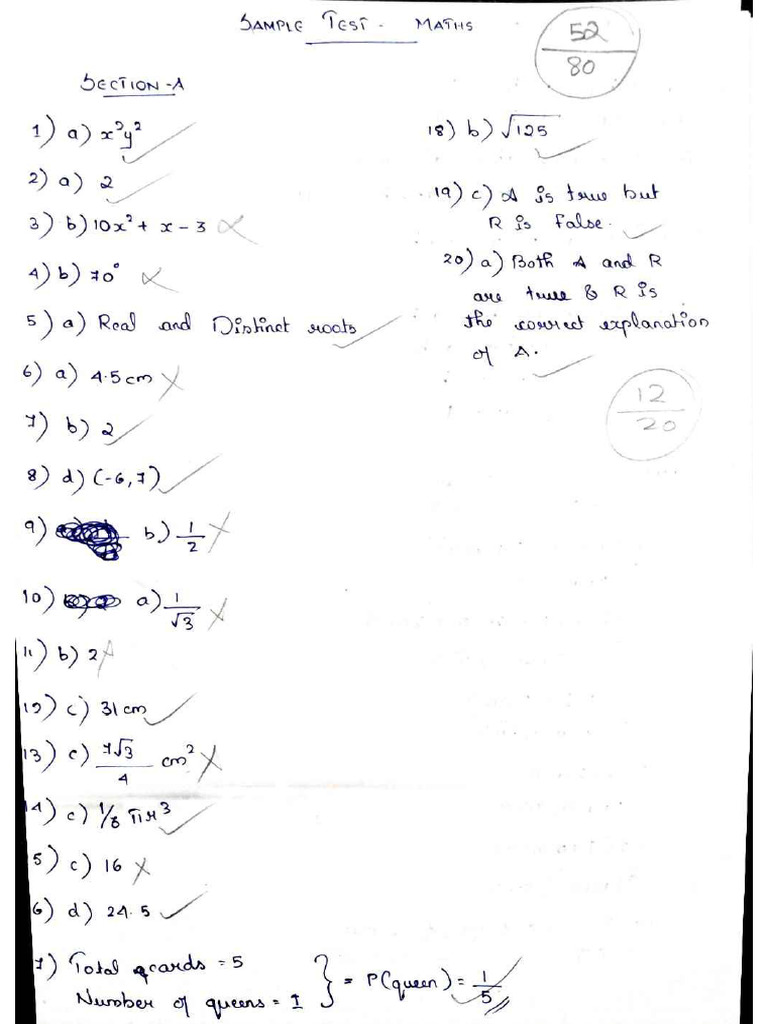 SAMPLE TEST - MATHS
52
80
SECTION-A
1) a) x²y²
2) a) 2
3) b) 10x² + x - 3
4) b) 70°
5) a) Real and Distinct roots
6) a) 4.5cm
7) b) 2
8) d) (-6,7)
9) b) 1/2
10) a) 1/√3
11) b) 2
12) c) 31cm
13) c) 7√3/4 cm²
14) c) 1/8 πr³
5) c) 16
6) d) 24.5
7) Total cards = 5
Number of queens = 1 } = P(queen) = 1/5
18) b) √125
19) c) A is true but
R is False.
20) a) Both A and R
are true & R is
the correct explanation
of A.
12
20